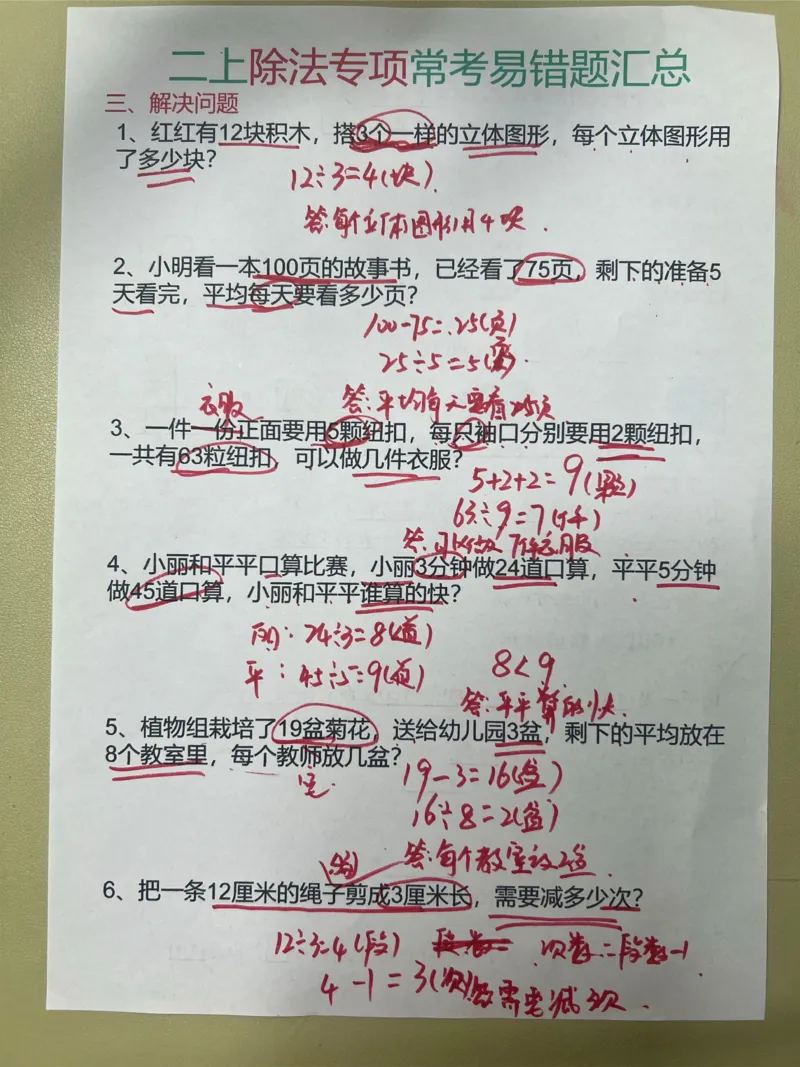 二上除法专项常考易错题汇总
三、解决问题
1、红红有12块积木，搭3个一样的立体图形，每个立体图形用
了多少块？
12÷3=4(块).
答:每个立体图形用4块.
2、小明看一本100页的故事书，已经看了75页，剩下的准备5
天看完，平均每天要看多少页？
100-75=25(页)
25÷5=5(页).
答:平均每天要看
衣服
3、一件一份正面要用5颗纽扣，每只袖口分别要用2颗纽扣，
一共有63粒纽扣，可以做几件衣服？
5+2+2=9(颗)
63÷9=7(件)
答:可以做7件衣服
4、小丽和平平口算比赛，小丽3分钟做24道口算，平平5分钟
做45道口算，小丽和平平谁算的快？
丽:24÷3=8(道)
平:45÷5=9(道)
8<9
答:平平算的快.
5、植物组栽培了19盆菊花，送给幼儿园3盆，剩下的平均放在
8个教室里，每个教师放几盆？
室
19-3=16(盆)
16÷8=2(盆)
答:每个教室放2盆
6、把一条12厘米的绳子剪成3厘米长，需要减多少次？
12÷3=4(段)
次数=段数-1
4-1=3(次)
答需要减3次.